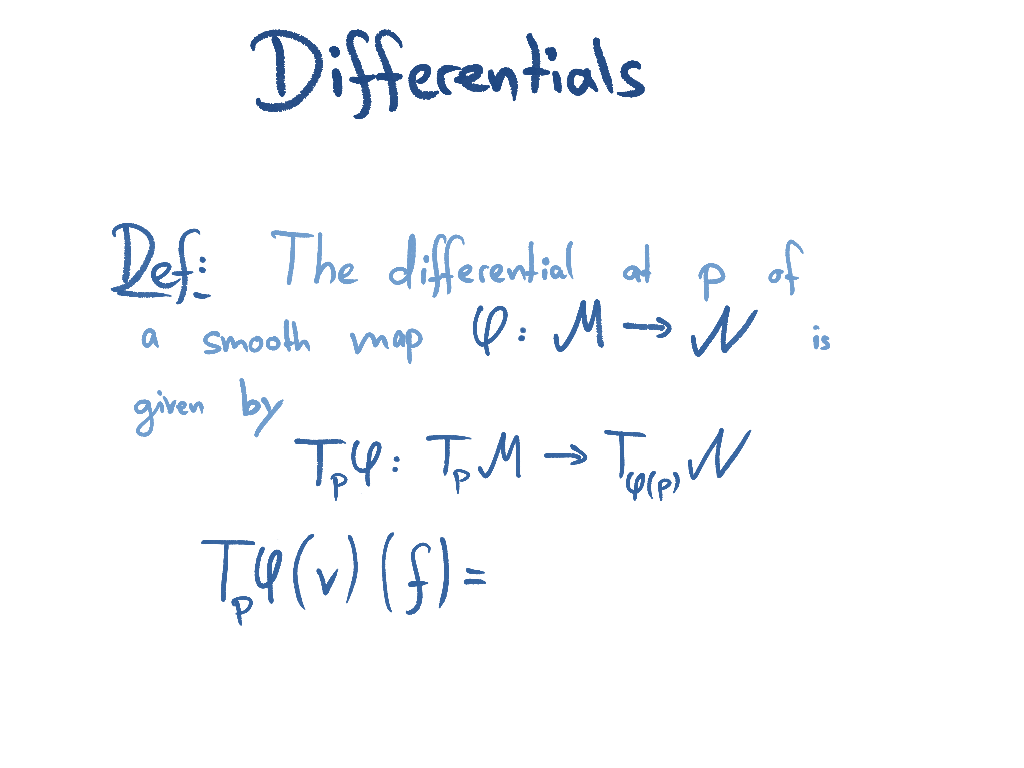 Differentials
Def: The differential at p of
a smooth map φ: M → N is
given by
Tₚφ: TₚM → T_φ(p) N
Tₚφ(v)(f) =